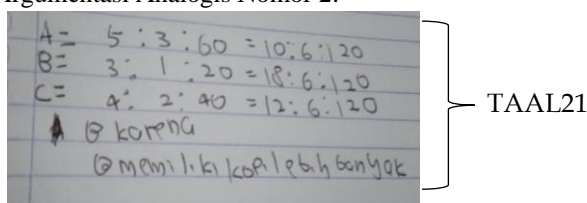 Argumentasi Analogis Nomor 2.
A = 5 : 3 : 60 = 10 : 6 : 120
B = 3 : 1 : 20 = 18 : 6 : 120
C = 4 : 2 : 40 = 12 : 6 : 120
B karena
B memiliki kopi lebih banyak
TAAL21